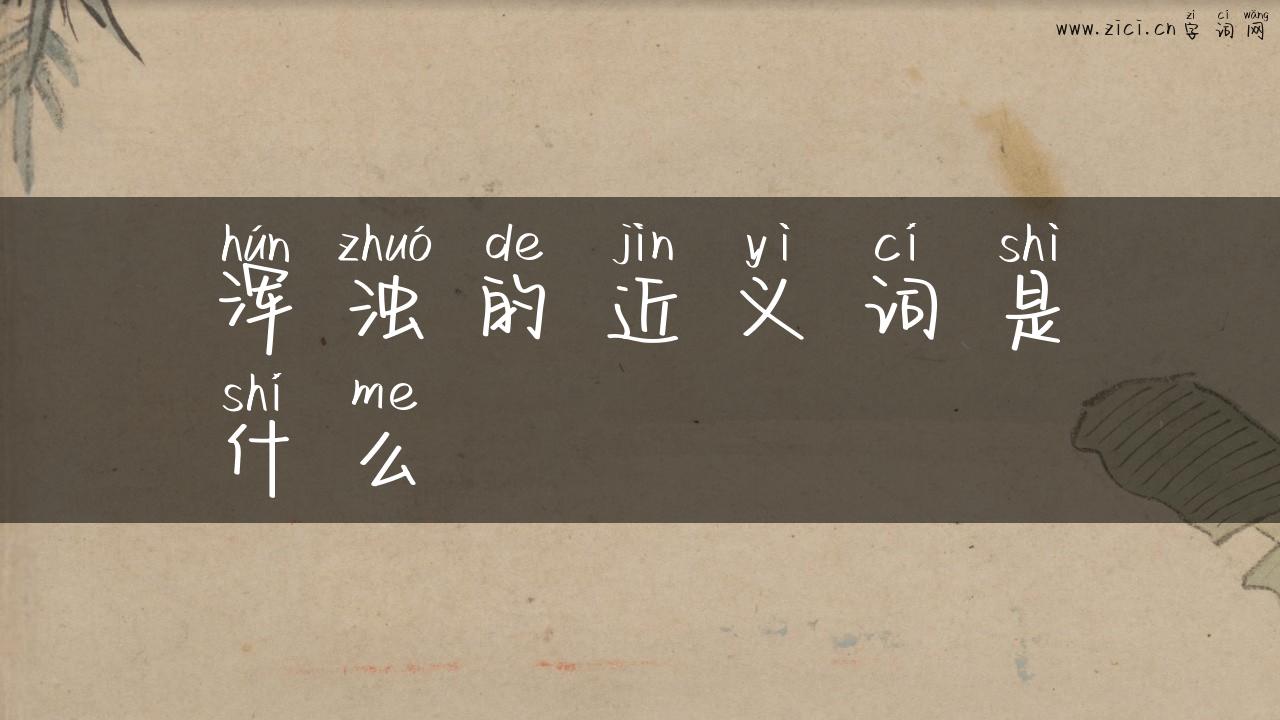 zì cí wǎng
www.zici.cn 字 词 网
hún zhuó de jìn yì cí shì
浑 浊 的 近 义 词 是
shí me
什 么